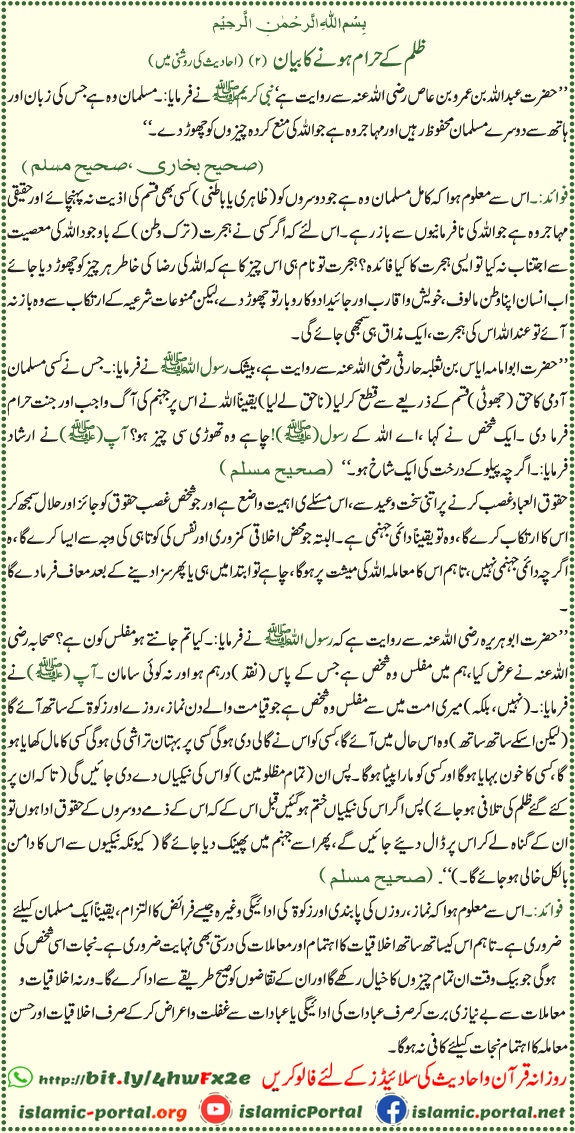 بِسْمِ اللهِ الرَّحْمٰنِ الرَّحِيْمِ
ظلم کے حرام ہونے کا بیان (۲) (احادیث کی روشنی میں)
’’حضرت عبداللہ بن عمرو بن عاص رضی اللہ عنہ سے روایت ہے‘ نبی کریم ﷺ نے فرمایا:۔ مسلمان وہ ہے جس کی زبان اور
ہاتھ سے دوسرے مسلمان محفوظ رہیں اور مہاجر وہ ہے جو اللہ کی منع کردہ چیزوں کو چھوڑ دے۔‘‘
(صحیح بخاری ،صحیح مسلم)
فوائد:۔ اس سے معلوم ہوا کہ کامل مسلمان وہ ہے جو دوسروں کو (ظاہری یا باطنی) کسی بھی قسم کی اذیت نہ پہنچائے اور حقیقی
مہاجر وہ ہے جو اللہ کی نافرمانیوں سے باز رہے۔ اس لئے کہ اگر کسی نے ہجرت (ترک وطن) کے باوجود اللہ کی معصیت
سے اجتناب نہ کیا تو ایسی ہجرت کا کیا فائدہ؟ ہجرت تو نام ہی اس چیز کا ہے کہ اللہ کی رضا کی خاطر ہر چیز کو چھوڑ دیا جائے
اب انسان اپنا وطن مالوف، خویش و اقارب اور جائیداد و کاروبار تو چھوڑ دے، لیکن ممنوعات شرعیہ کے ارتکاب سے وہ باز نہ
آئے تو عند اللہ اس کی ہجرت، ایک مذاق ہی سمجھی جائے گی۔
’’حضرت ابو امامہ ایاس بن ثعلبہ حارثی رضی اللہ عنہ سے روایت ہے، بیشک رسول اللہ ﷺ نے فرمایا:۔ جس نے کسی مسلمان
آدمی کا حق (جھوٹی) قسم کے ذریعے سے قطع کر لیا (ناحق لے لیا) یقیناً اللہ نے اس پر جہنم کی آگ واجب اور جنت حرام
فرما دی۔ ایک شخص نے کہا ،اے اللہ کے رسول (ﷺ)! چاہے وہ تھوڑی سی چیز ہو؟ آپ (ﷺ) نے ارشاد
فرمایا:۔ اگرچہ پیلو کے درخت کی ایک شاخ ہو۔‘‘ (صحیح مسلم)
حقوق العباد غصب کرنے پر اتنی سخت وعید سے، اس مسئلے کی اہمیت واضح ہے اور جو شخص غصب حقوق کو جائز اور حلال سمجھ کر
اس کا ارتکاب کرے گا، وہ تو یقیناً دائمی جہنمی ہے۔ البتہ جو محض اخلاقی کمزوری اور نفس کی کوتاہی کی وجہ سے ایسا کرے گا، وہ
اگرچہ دائمی جہنمی نہیں، تاہم اس کا معاملہ اللہ کی میشت پر ہوگا، چاہے تو ابتدا میں ہی یا پھر سزا دینے کے بعد معاف فرما دے گا
۔
’’حضرت ابو ہریرہ رضی اللہ عنہ سے روایت ہے کہ رسول اللہ ﷺ نے فرمایا:۔ کیا تم جانتے ہو مفلس کون ہے؟ صحابہ رضی
اللہ عنہ نے عرض کیا، ہم میں مفلس وہ شخص ہے جس کے پاس (نقد) درہم ہو اور نہ کوئی سامان۔ آپ (ﷺ) نے
فرمایا:۔ (نہیں، بلکہ) میری امت میں سے مفلس وہ شخص ہے جو قیامت والے دن نماز، روزے اور زکوۃ کے ساتھ آئے گا
(لیکن اسکے ساتھ ساتھ) وہ اس حال میں آئے گا، کسی کو اس نے گالی دی ہوگی کسی پر بہتان تراشی کی ہوگی کسی کا مال کھایا ہو
گا، کسی کا خون بہایا ہوگا اور کسی کو مارا پیٹا ہوگا۔ پس ان (تمام مظلومین) کو اس کی نیکیاں دے دی جائیں گی (تا کہ ان پر
کئے گئے ظلم کی تلافی ہو جائے) پس اگر اس کی نیکیاں ختم ہو گئیں قبل اس کے کہ اس کے ذمے دوسروں کے حقوق ادا ہوں تو
ان کے گناہ لے کر اس پر ڈال دیئے جائیں گے، پھر اسے جہنم میں پھینک دیا جائے گا (کیونکہ نیکیوں سے اس کا دامن
بالکل خالی ہو جائے گا۔)‘‘۔ (صحیح مسلم)
فوائد:۔ اس سے معلوم ہوا کہ نماز، روزوں کی پابندی اور زکوۃ کی ادائیگی وغیرہ جیسے فرائض کا التزام، یقیناً ایک مسلمان کیلئے
ضروری ہے۔ تاہم اس کیساتھ ساتھ اخلاقیات کا اہتمام اور معاملات کی درستی بھی نہایت ضروری ہے۔ نجات اسی شخص کی
ہوگی جو بیک وقت ان تمام چیزوں کا خیال رکھے گا اور ان کے تقاضوں کو صحیح طریقے سے ادا کرے گا۔ ورنہ اخلاقیات و
معاملات سے بے نیازی برت کر صرف عبادات کی ادائیگی یا عبادات سے غفلت و اعراض کر کے صرف اخلاقیات اور حسن
معاملہ کا اہتمام نجات کیلئے کافی نہ ہوگا۔
روزانہ قرآن و احادیث کی سلائیڈز کے لئے فالو کریں http://bit.ly/4hwFx2e
islamic-portal.org islamicPortal islamic.portal.net